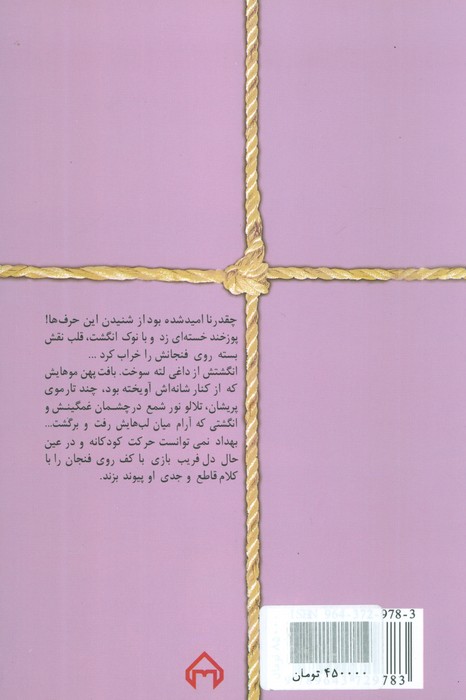 چقدر نا امید شده بود از شنیدن این حرف‌ها!
پوزخند خسته‌ای زد و با نوک انگشت، قلب نقش
بسته روی فنجانش را خراب کرد ...
انگشتش از داغی لته سوخت. بافت پهن موهایش
که از کنار شانه‌اش آویخته بود، چند تار موی
پریشان، تلالو نور شمع در چشمان غمگینش و
انگشتی که آرام میان لب‌هایش رفت و برگشت...
بهداد نمی توانست حرکت کودکانه و در عین
حال دل فریب بازی با کف روی فنجان را با
کلام قاطع و جدی او پیوند بزند.
978-3
۴۵۰۰۰۰ تومان
783